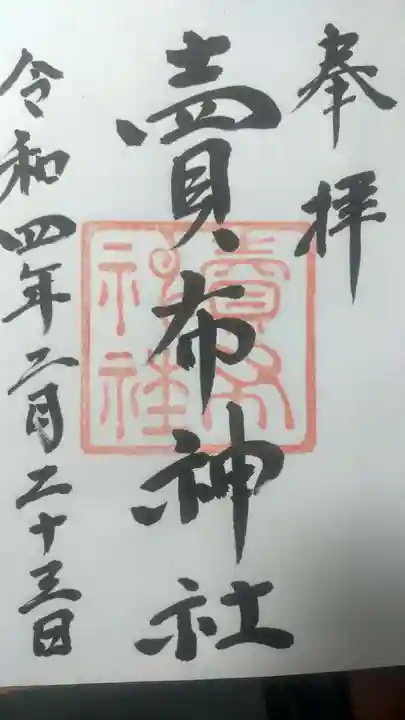 奉拝
賣布神社
賣布神社
令和四年二月二十三日